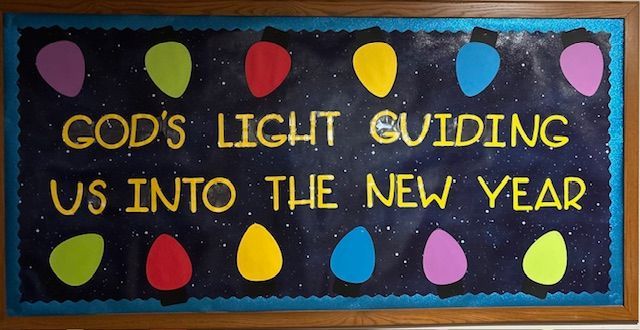 GOD'S LIGHT GUIDING
US INTO THE NEW YEAR